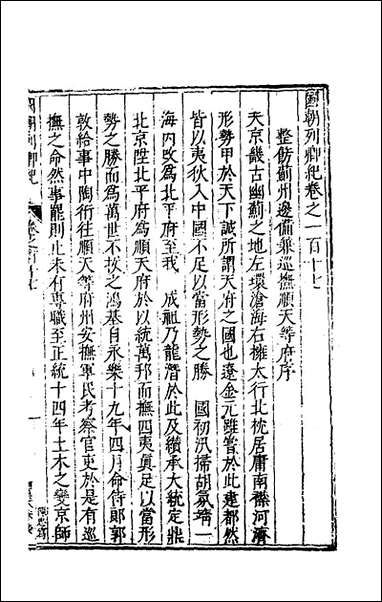 國朝列卿紀卷之一百十七
整飭薊州邊備兼巡撫順天等府序
天京畿古幽薊之地左環滄海右擁太行北枕居庸南襟河濟
形勢甲於天下誠所謂天府之國也遼金元雖嘗於此建都然
皆以夷狄入中國不足以當形勢之勝 國初汛掃胡氛靖一
海内改為北平府至我 成祖乃龍潛於此及纘承大統定鼎
北京陞北平府為順天府於以統萬邦而撫四夷眞足以當形
勢之勝而為萬世不拔之鴻基自永樂十九年四月命侍郎郭
敦給事中陶衎往順天等府州安撫軍民考察官吏於是有巡
撫之命然事罷則止未有專職至正統十四年土木之變京師
國朝列卿紀
卷之一百十七